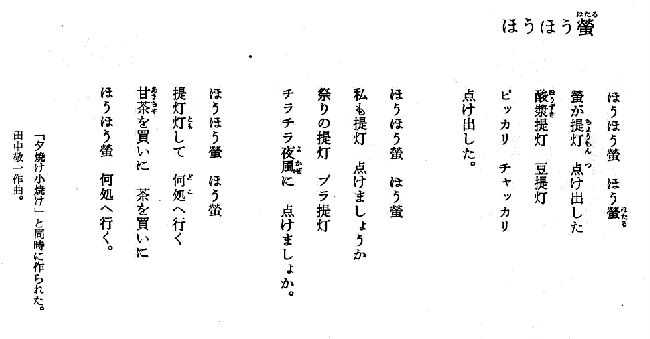 ほうほう螢
ほうほう螢 ほう螢
螢が提灯 点け出した
酸漿提灯 豆提灯
ピッカリ チャッカリ
点け出した。
ほうほう螢 ほう螢
私も提灯 点けましょうか
祭りの提灯 ブラ提灯
チラチラ夜風に 点けましょか。
ほうほう螢 ほう螢
提灯灯して 何処へ行く
甘茶を買いに 茶を買いに
ほうほう螢 何処へ行く。
「夕焼け小焼け」と同時に作られた。
田中敬一作曲。